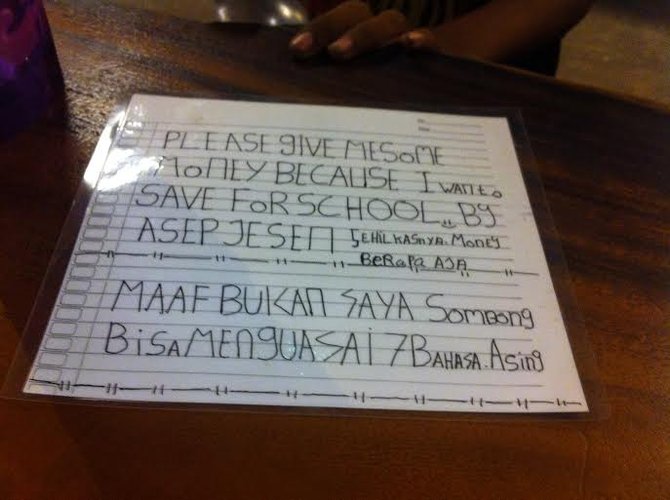 PLEASE gIVE ME SOME
MONEY BECAUSE I WANt to
SAVE FOR SCHOOL.. By
ASEP JESEN SEHIL KASNYA. MONEY
BERAPA AJA
MAAF BUKAN SAYA Sombong
BiSA MENgUASAI 7 BAHASA. ASing